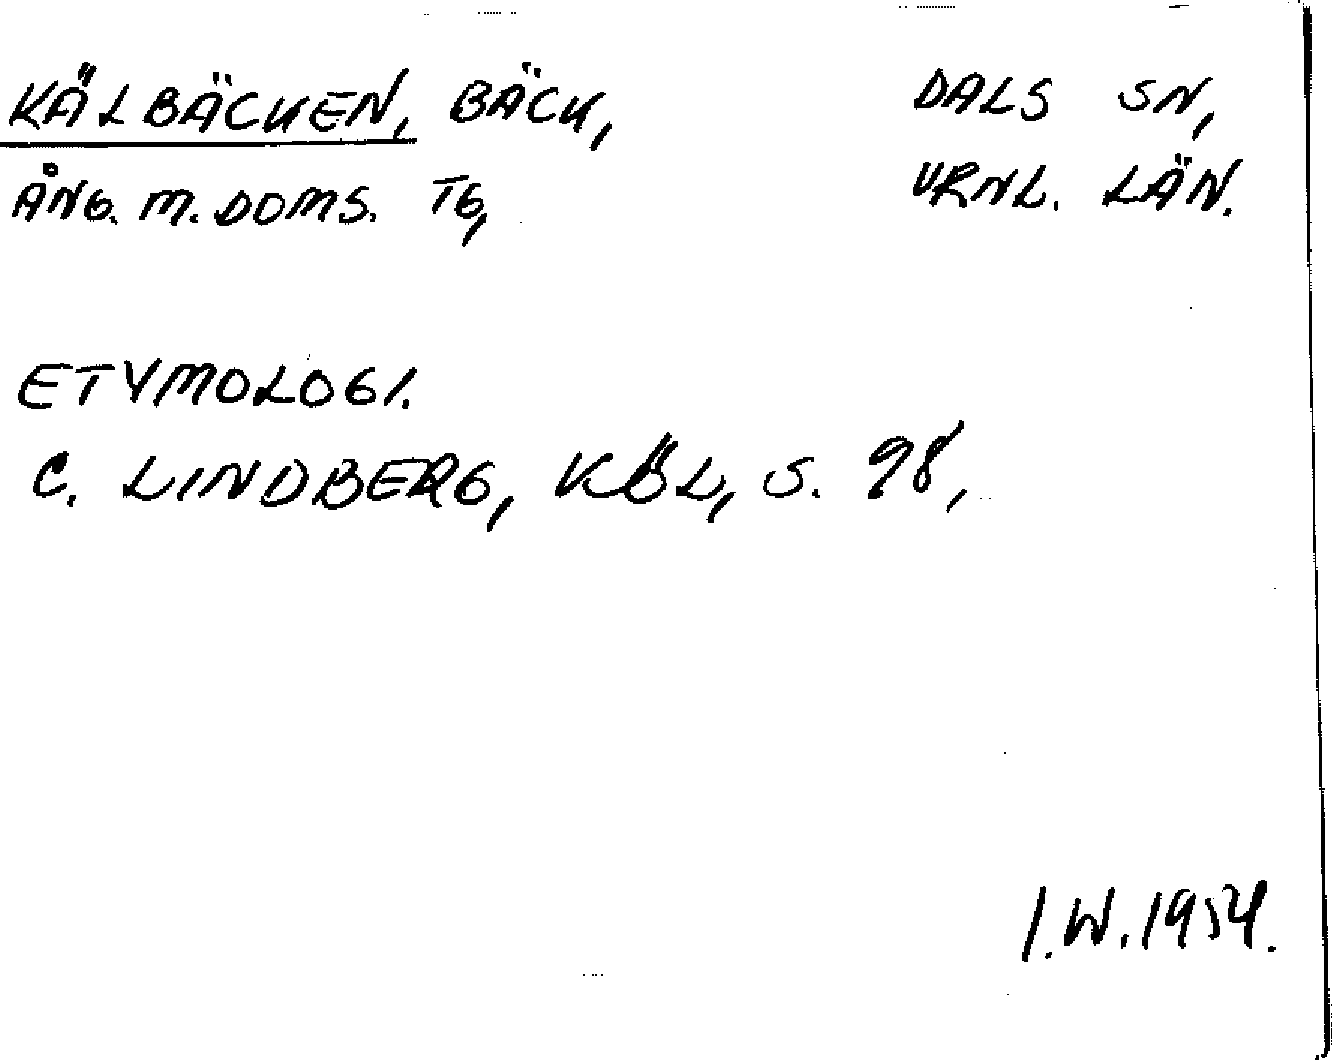 KÄLBÄCKEN, BÄCK, DALS SN,
ÅNG. M. DOMS. TG, VRNL. LÄN.
ETYMOLOGI.
C. LINDBERG, KÖL, S. 98,
I.W. 1954.